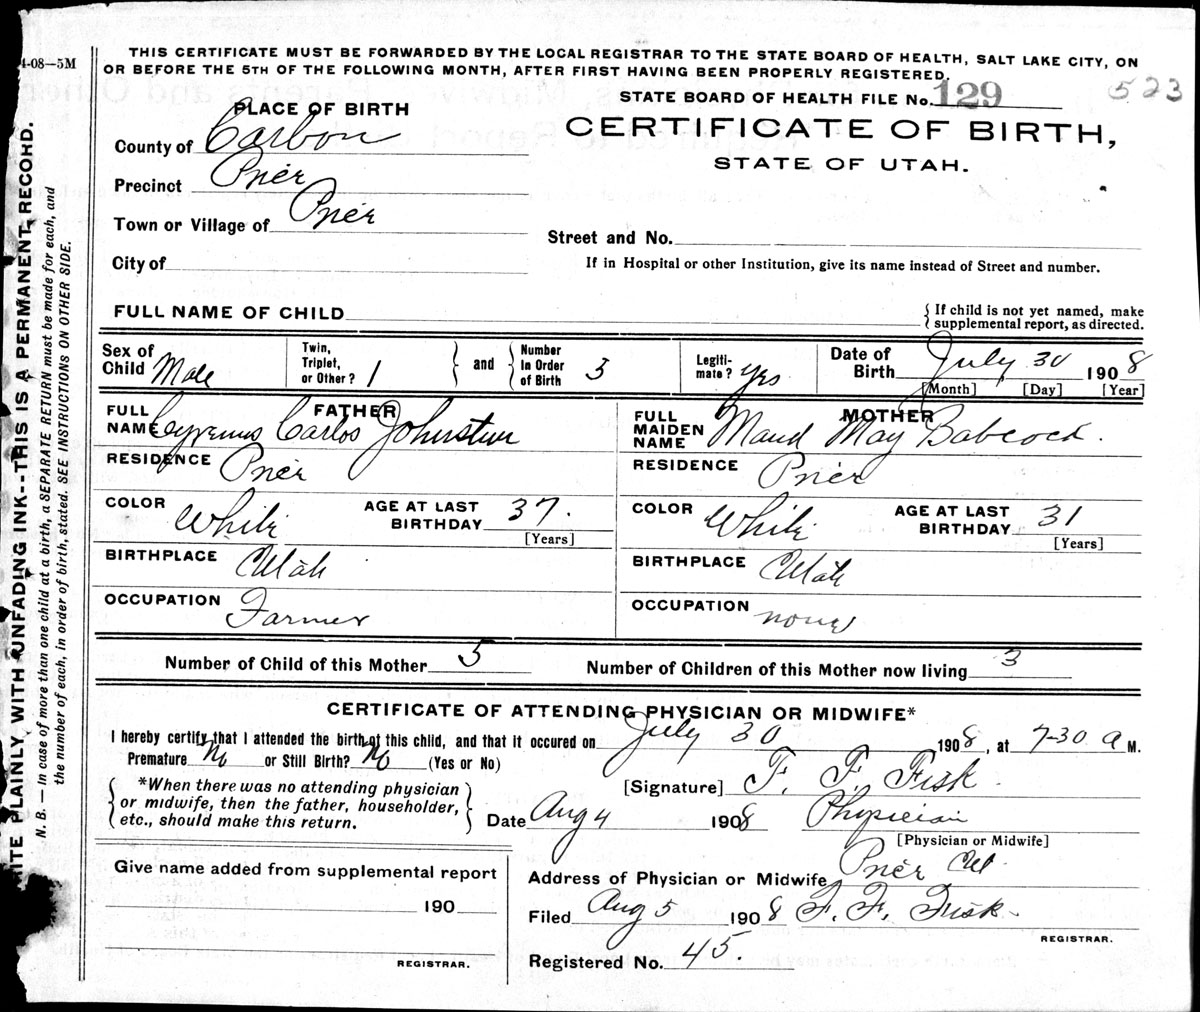 4-08—5M
THIS CERTIFICATE MUST BE FORWARDED BY THE LOCAL REGISTRAR TO THE STATE BOARD OF HEALTH, SALT LAKE CITY, ON
OR BEFORE THE 5TH OF THE FOLLOWING MONTH, AFTER FIRST HAVING BEEN PROPERLY REGISTERED.
STATE BOARD OF HEALTH FILE No. 129 523
PLACE OF BIRTH
CERTIFICATE OF BIRTH,
STATE OF UTAH.
County of Carbon
Precinct Price
Town or Village of Price
Street and No.
City of
If in Hospital or other Institution, give its name instead of Street and number.
FULL NAME OF CHILD
{ If child is not yet named, make
supplemental report, as directed.
Sex of
Child Male
Twin,
Triplet,
or Other? 1
} and {
Number
In Order
of Birth 3
Legiti-
mate? yes
Date of
Birth July 30 1908
[Month] [Day] [Year]
FATHER
FULL
NAME Cyrenus Carlos Johnston
RESIDENCE Price
COLOR White
AGE AT LAST
BIRTHDAY 37.
[Years]
BIRTHPLACE Utah
OCCUPATION Farmer
MOTHER
FULL
MAIDEN
NAME Maud May Babcock.
RESIDENCE Price
COLOR White
AGE AT LAST
BIRTHDAY 31
[Years]
BIRTHPLACE Utah
OCCUPATION none
Number of Child of this Mother 5
Number of Children of this Mother now living 3
CERTIFICATE OF ATTENDING PHYSICIAN OR MIDWIFE*
I hereby certify that I attended the birth of this child, and that it occured on July 30 1908, at 7-30 a M.
Premature No or Still Birth? No (Yes or No)
[Signature] F. F. Fisk.
{ *When there was no attending physician
or midwife, then the father, householder,
etc., should make this return. }
Date Aug 4 1908 Physician
[Physician or Midwife]
Give name added from supplemental report
190
REGISTRAR.
Address of Physician or Midwife Price Ut
Filed Aug 5 1908 F. F. Fisk
REGISTRAR.
Registered No. 45.
ITE PLAINLY WITH UNFADING INK--THIS IS A PERMANENT RECORD.
N. B. — In case of more than one child at a birth, a SEPARATE RETURN must be made for each, and
the number of each, in order of birth, stated. SEE INSTRUCTIONS ON OTHER SIDE.